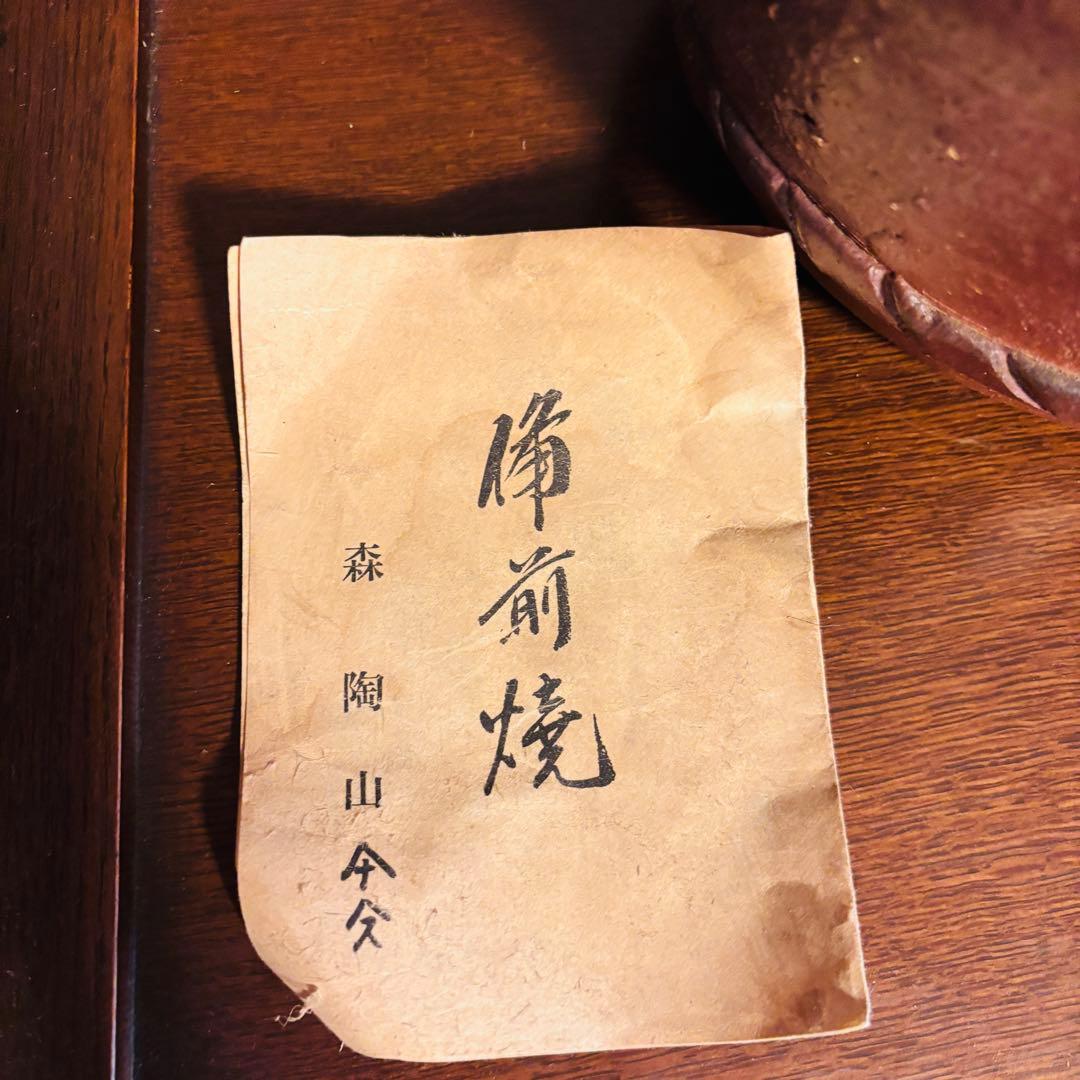 備前燒
森陶山